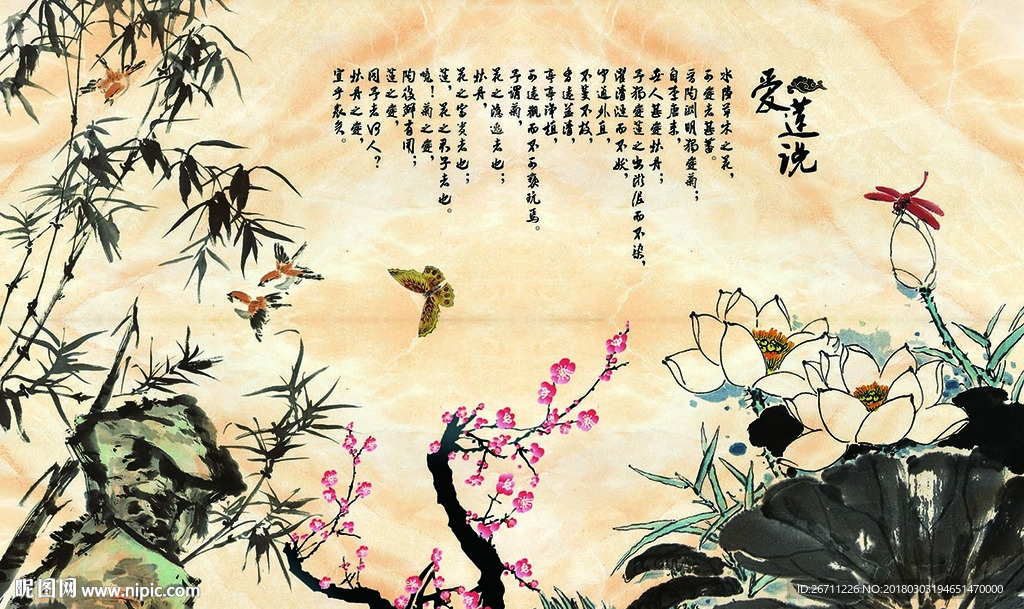 爱莲说
水陆草木之花，
可爱者甚蕃。
晋陶渊明独爱菊；
自李唐来，
世人甚爱牡丹；
予独爱莲之出淤泥而不染，
濯清涟而不妖，
中通外直，
不蔓不枝，
香远益清，
亭亭净植，
可远观而不可亵玩焉。
予谓菊，
花之隐逸者也；
牡丹，
花之富贵者也；
莲，花之君子者也。
噫！菊之爱，
陶后鲜有闻；
莲之爱，
同予者何人？
牡丹之爱，
宜乎众矣。
昵图网 www.nipic.com
ID:26711226 NO:20180303194651470000